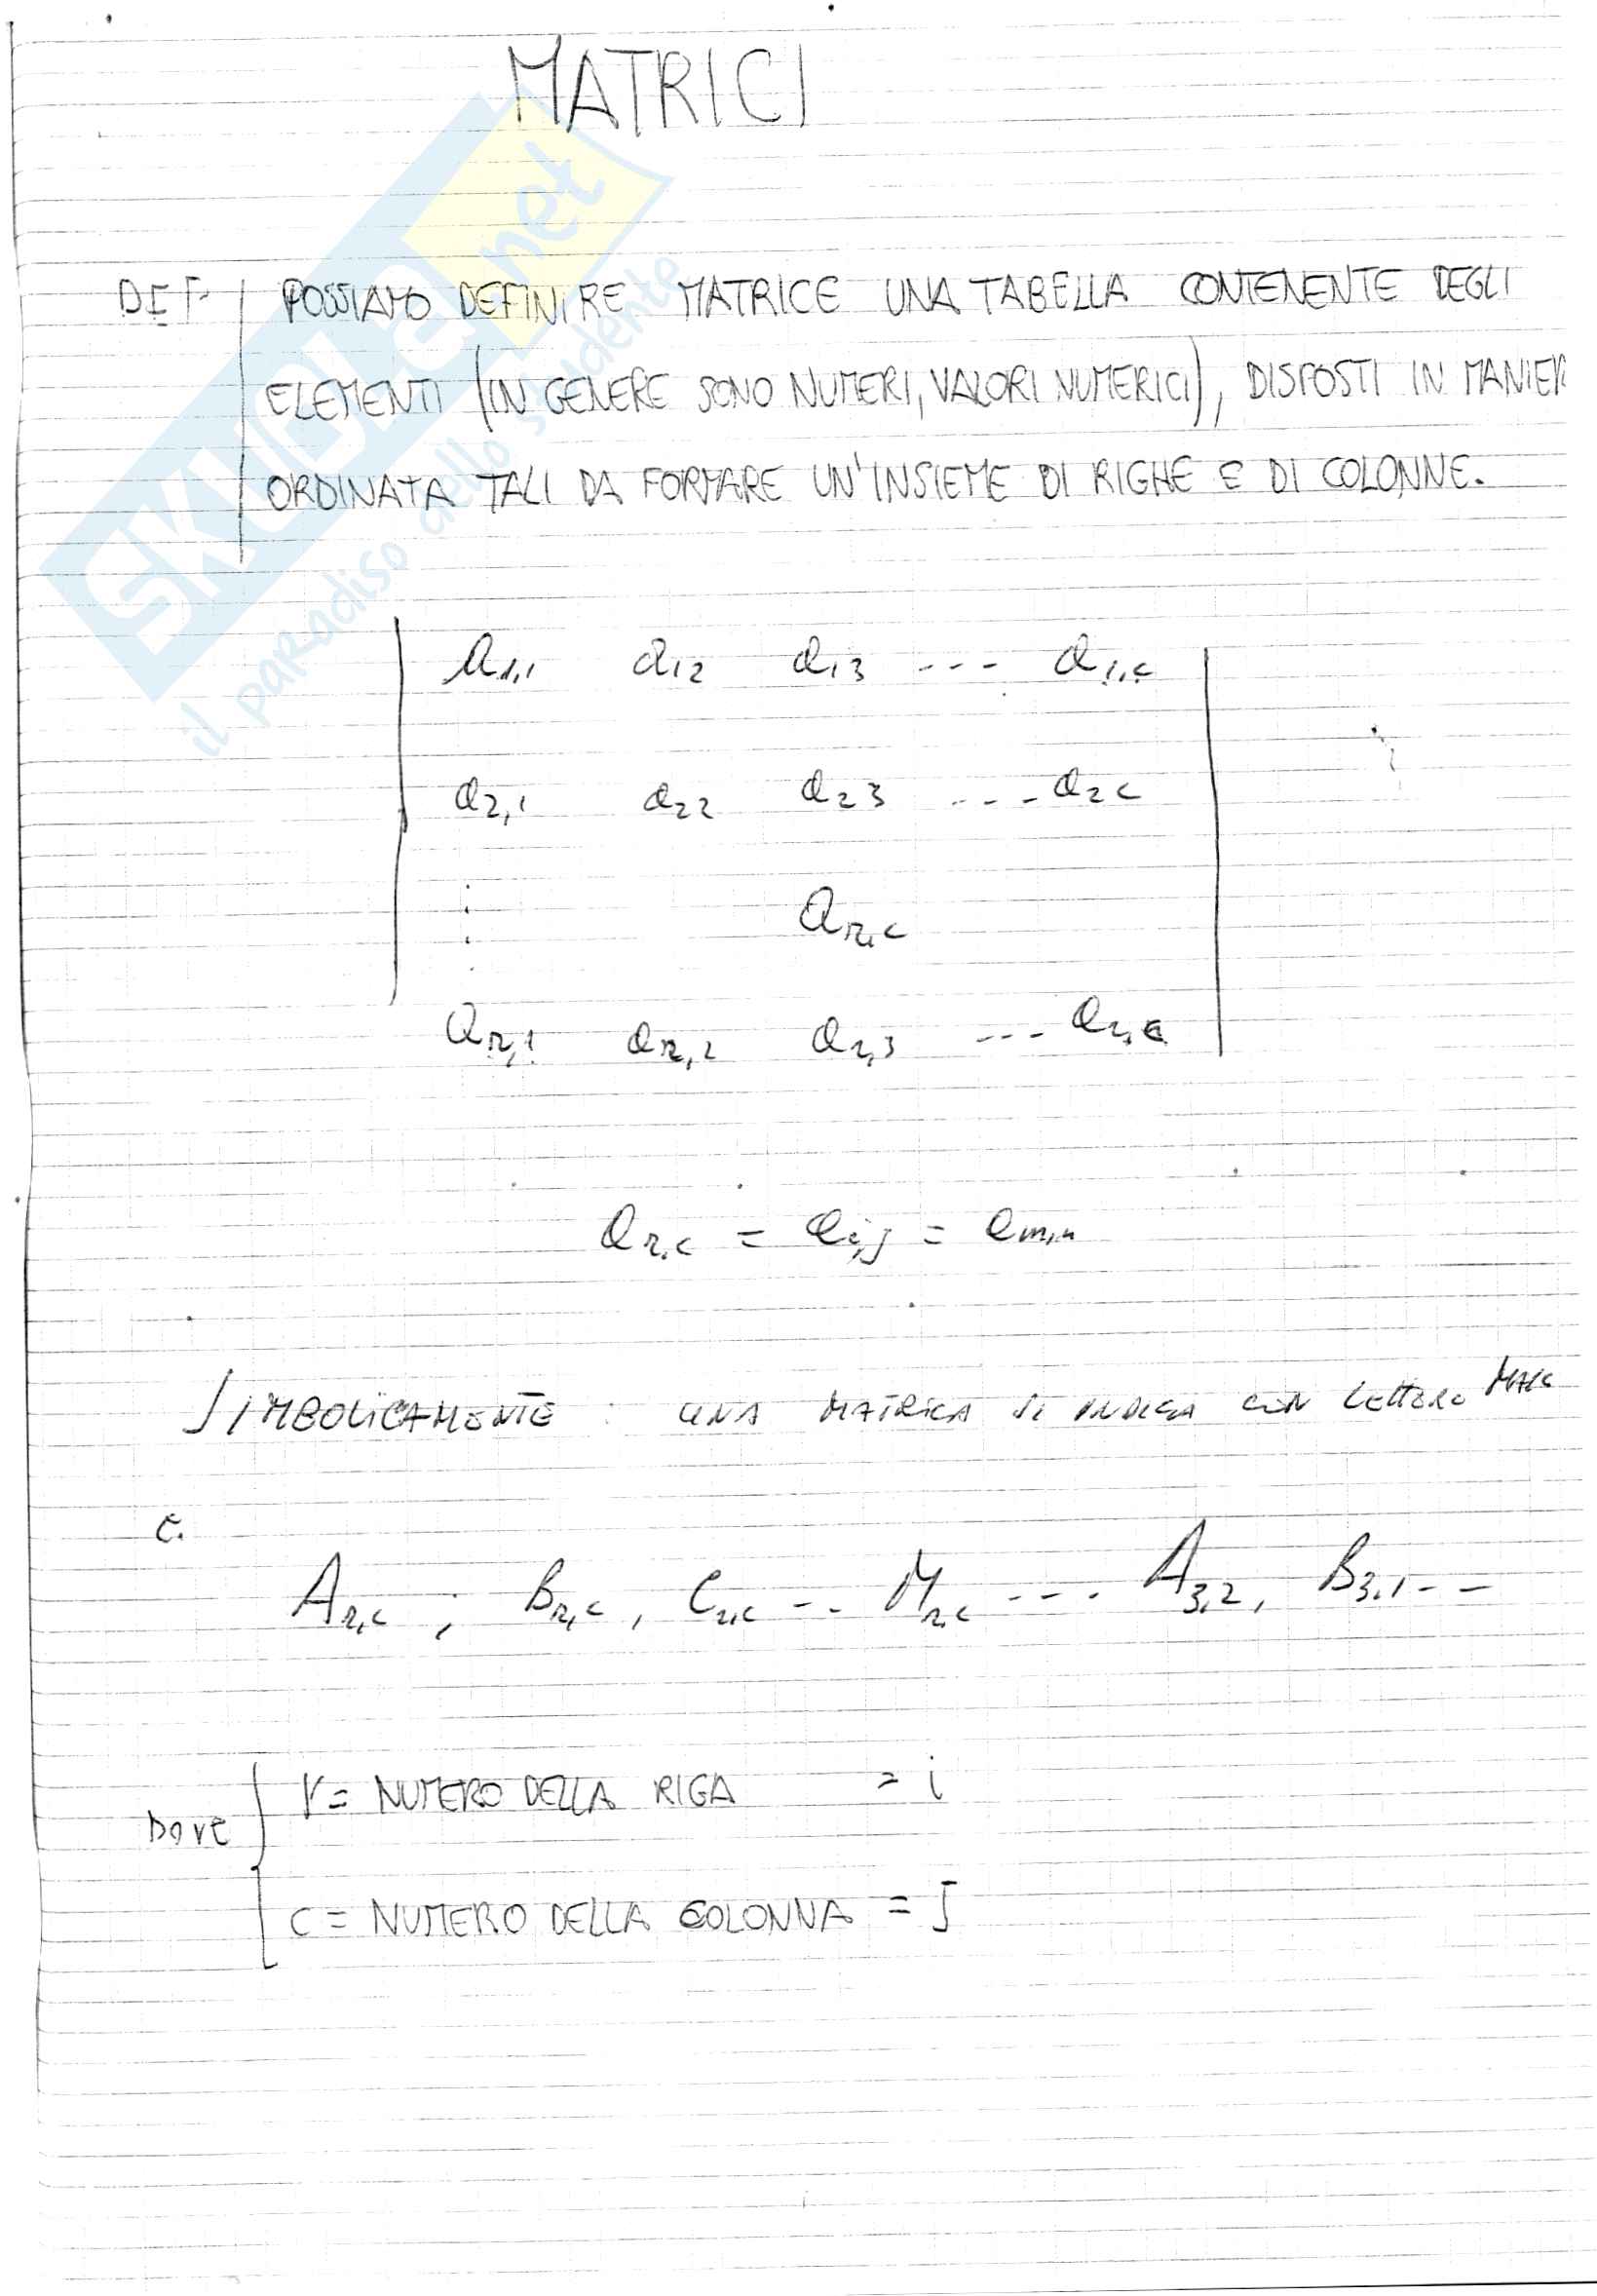 MATRICI
DEF POSSIAMO DEFINIRE MATRICE UNA TABELLA CONTENENTE DEGLI
ELEMENTI (IN GENERE SONO NUMERI, VALORI NUMERICI), DISPOSTI IN MANIER
ORDINATA TALI DA FORMARE UN'INSIEME DI RIGHE E DI COLONNE.
SKUOLA.net
il paradiso dello studente
a1,1 a12 a13 --- a1,c
a2,1 a22 a23 ---- a2c
ar,c
ar,1 ar,2 ar,3 --- ar,c
ar,c = ai,j = am,n
SIMBOLICAMENTE : UNA MATRICA SI INDICA CON LETTERE MAIC
Ar,c ; Br,c , Cr,c -.. Mr,c --- A3,2, B3,1--
DOVE r = NUMERO DELLA RIGA = i
C = NUMERO DELLA COLONNA = J